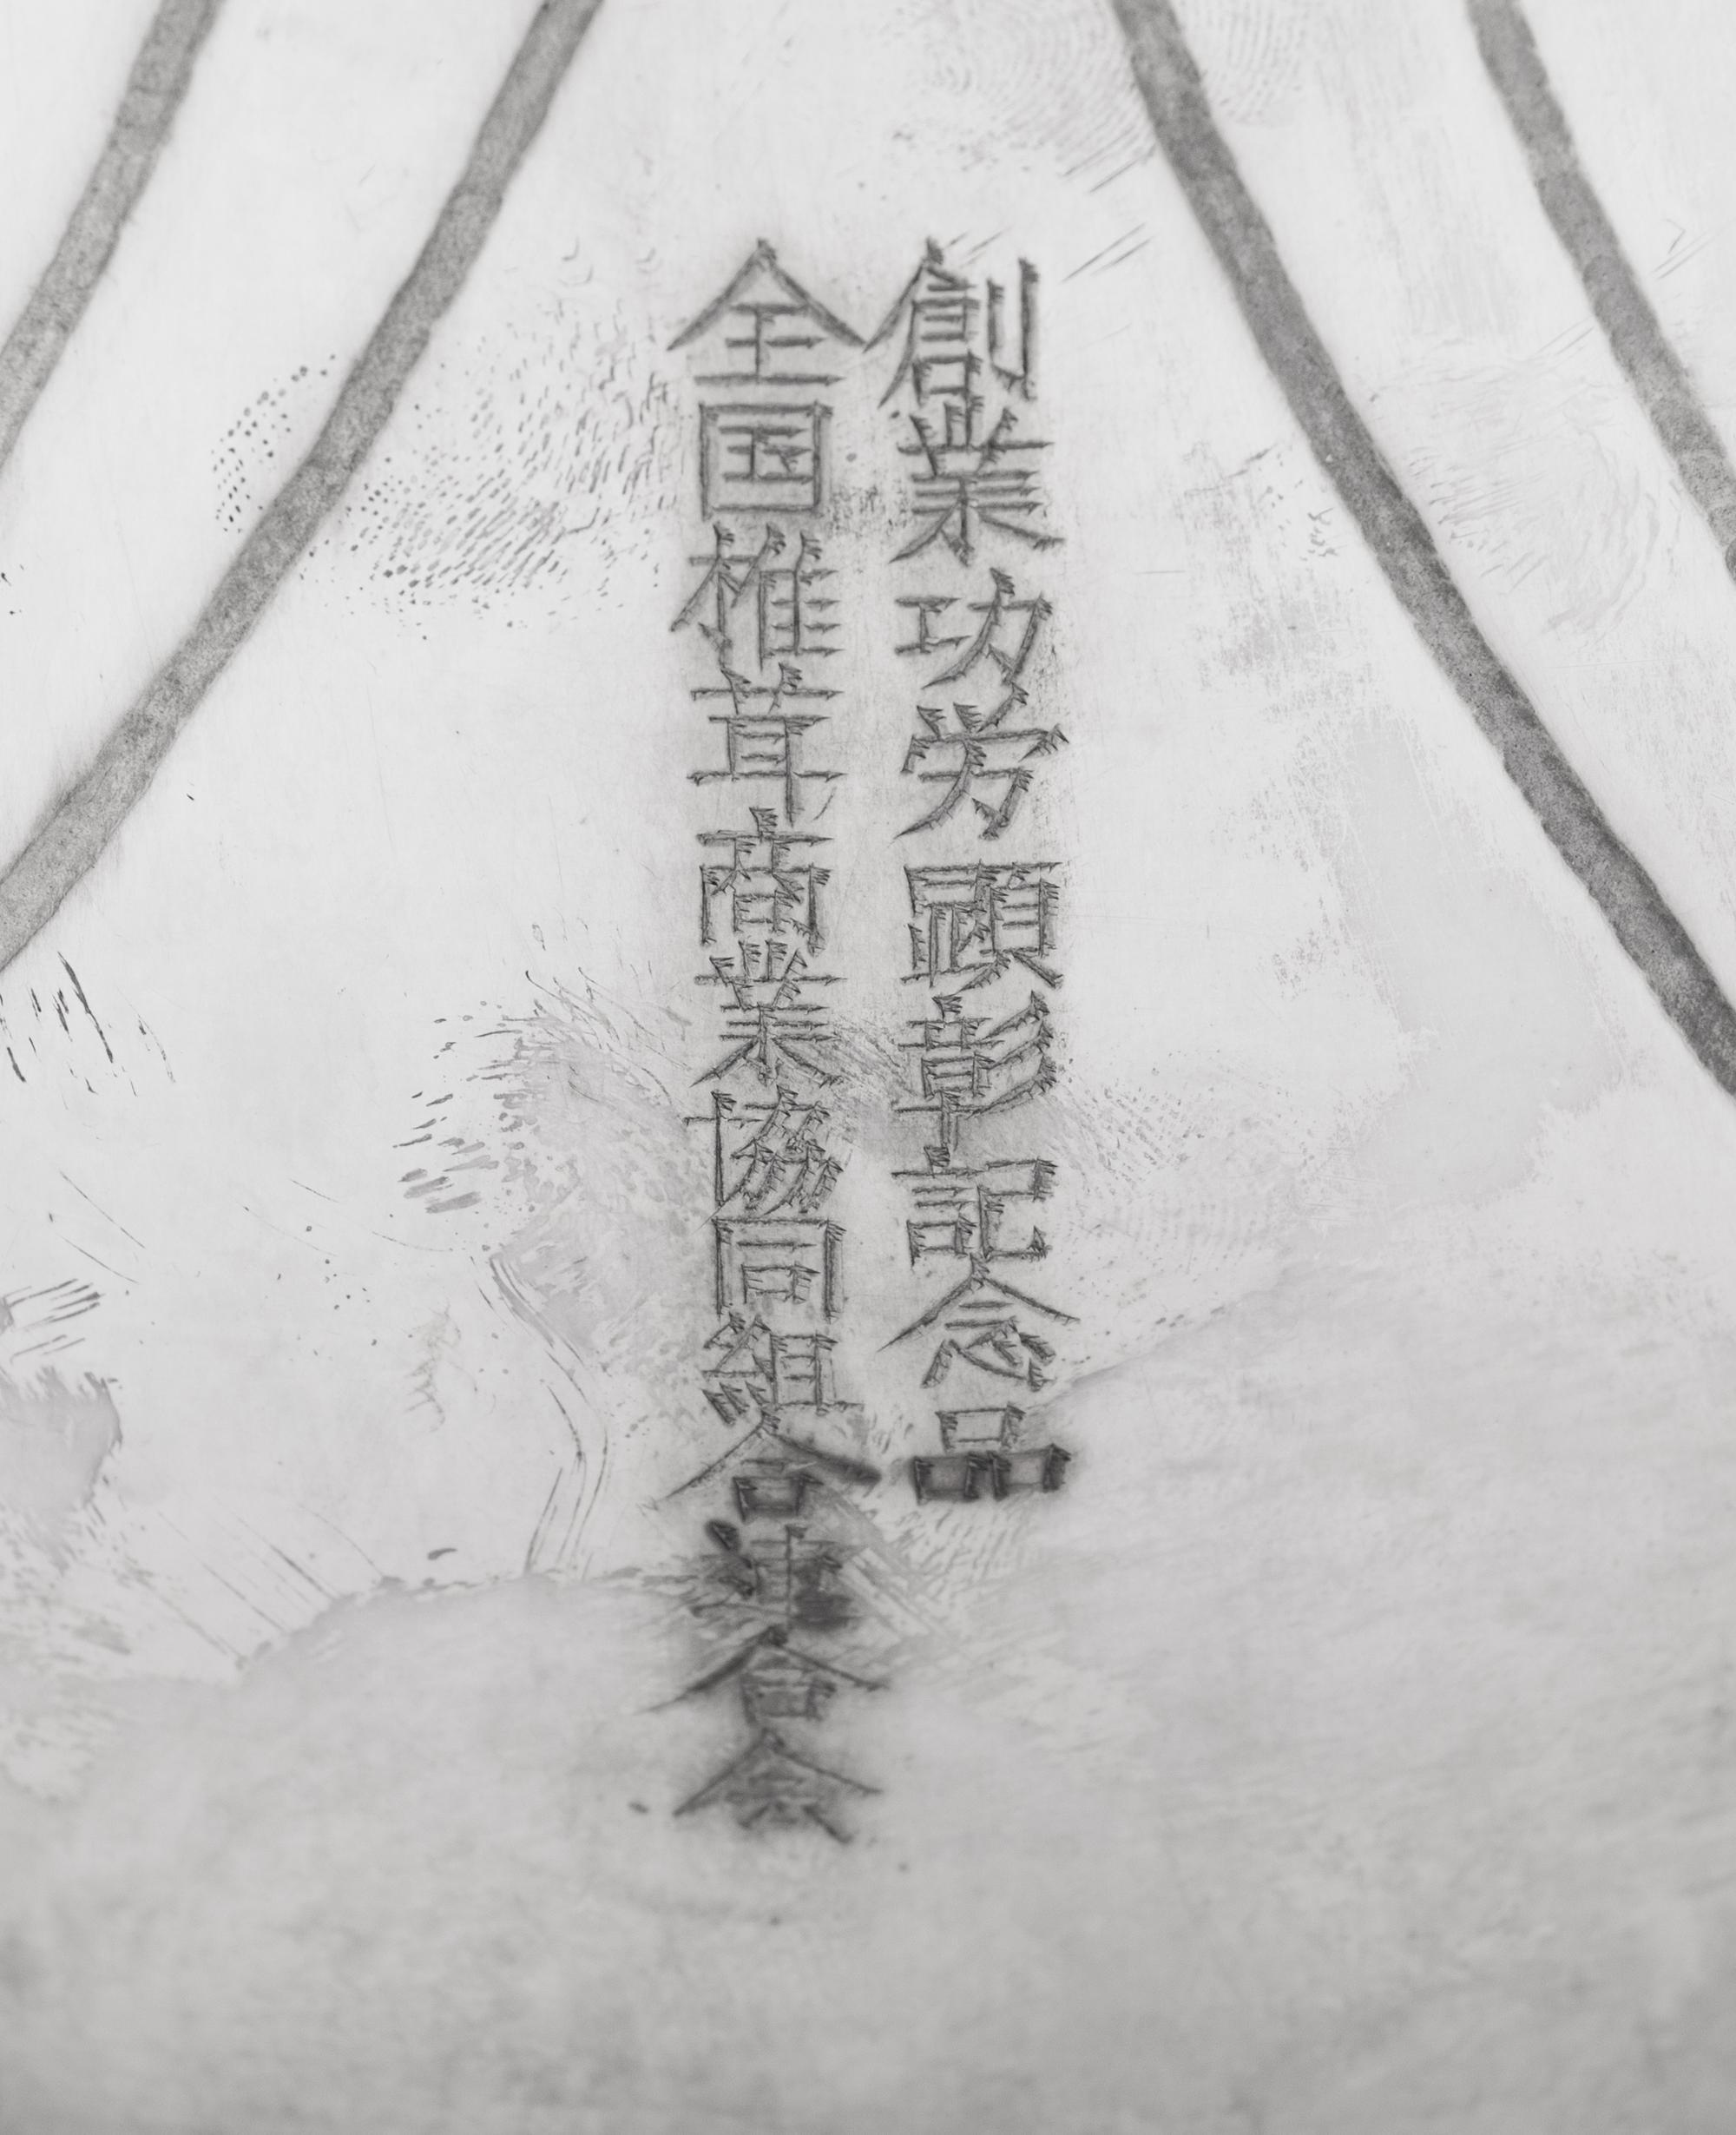 創業功労顕彰記念品
全国椎茸商業協同組合連合会